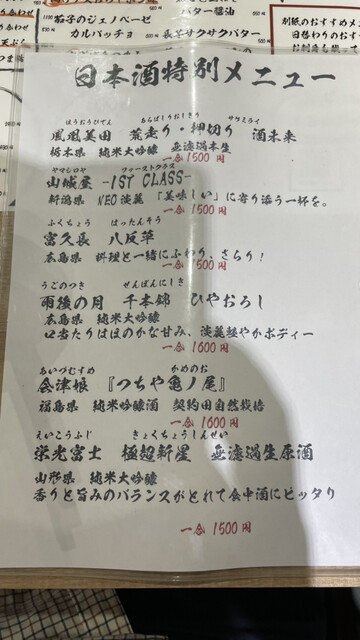 茄子のジェノベーゼ
カルパッチョ
バター醤油
長芋サクサクバター
別紙のおすすめメ
日替わりのおすす
日本酒特別メニュー
ほうおうびでん あらばしりおしきり サケミライ
鳳凰美田 荒走り・押切り 酒未来
栃木県 純米大吟醸 無濾過本生
一合1500円
ヤマシロヤ ファーストクラス
山城屋 -1ST CLASS-
新潟県 NEO淡麗 「美味しい」に寄り添う一杯を。
一合1500円
ふくちょう はったんそう
富久長 八反草
広島県 料理と一緒にふわり、さらり!
一合1500円
うごのつき せんぼんにしき
雨後の月 千本錦 ひやおろし
広島県 純米大吟醸
口当たりはほのかな甘み、淡麗軽やかボディー
一合1600円
あいづむすめ かめのお
会津娘 『つちや亀ノ尾』
福島県 純米吟醸酒 契約田自然栽培
一合1600円
えいこうふじ きょくちょうしんせい
栄光冨士 極超新星 無濾過生原酒
山形県 純米大吟醸
香りと旨みのバランスがとれて食中酒にピッタリ
一合1500円